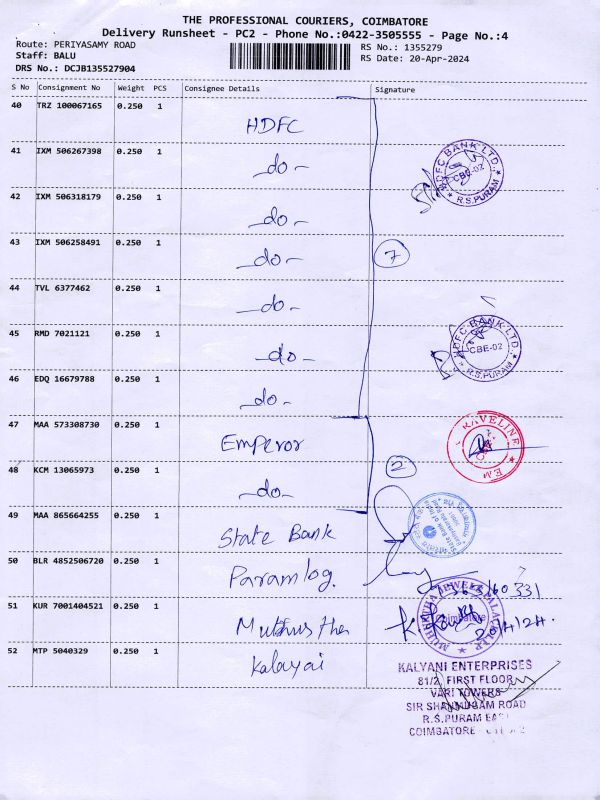 THE PROFESSIONAL COURIERS, COIMBATORE
Delivery Runsheet - PC2 - Phone No.:0422-3505555 - Page No.:4
Route: PERIYASAMY ROAD RS No.: 1355279
Staff: BALU RS Date: 20-Apr-2024
DRS No.: DCJB135527904
S No Consignment No Weight PCS Consignee Details Signature
40 TRZ 100067165 0.250 1 HDFC
41 IXM 506267398 0.250 1 -do-
HDFC BANK LTD. CBE-02 R.S.PURAM
42 IXM 506318179 0.250 1 -do-
43 IXM 506258491 0.250 1 -do- 7
44 TVL 6377462 0.250 1 -do-
45 RMD 7021121 0.250 1 -do-
HDFC BANK LTD. CBE-02 R.S.PURAM
46 EDQ 16679788 0.250 1 -do-
47 MAA 573308730 0.250 1 Emperor
RAVELINE
48 KCM 13065973 0.250 1 -do- 2
49 MAA 865664255 0.250 1 State Bank
State Bank of India
50 BLR 4852506720 0.250 1 Paramlog.
51 KUR 7001404521 0.250 1
Coimbatore
52 MTP 5040329 0.250 1 Kalayai
KALYANI ENTERPRISES
81/2 FIRST FLOOR
VARI TOWERS
SIR SHANMUGAM ROAD
R.S.PURAM EAST
COIMBATORE